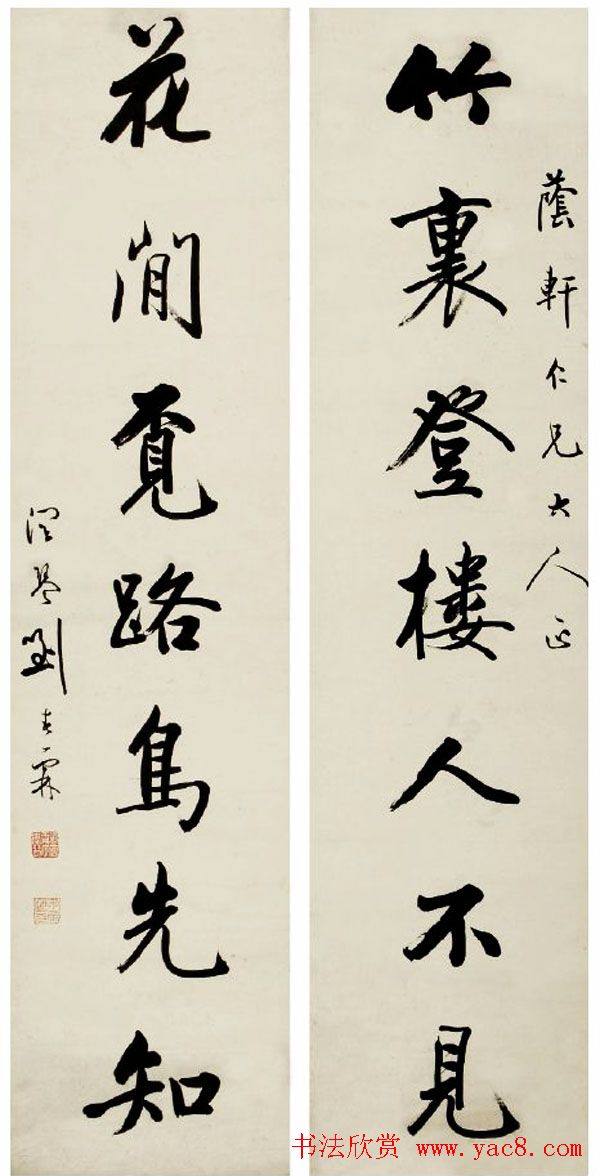 蔭軒仁兄大人正
竹裏登樓人不見
花間覓路鳥先知
潤琴劉春霖
书法欣赏 www.yac8.com